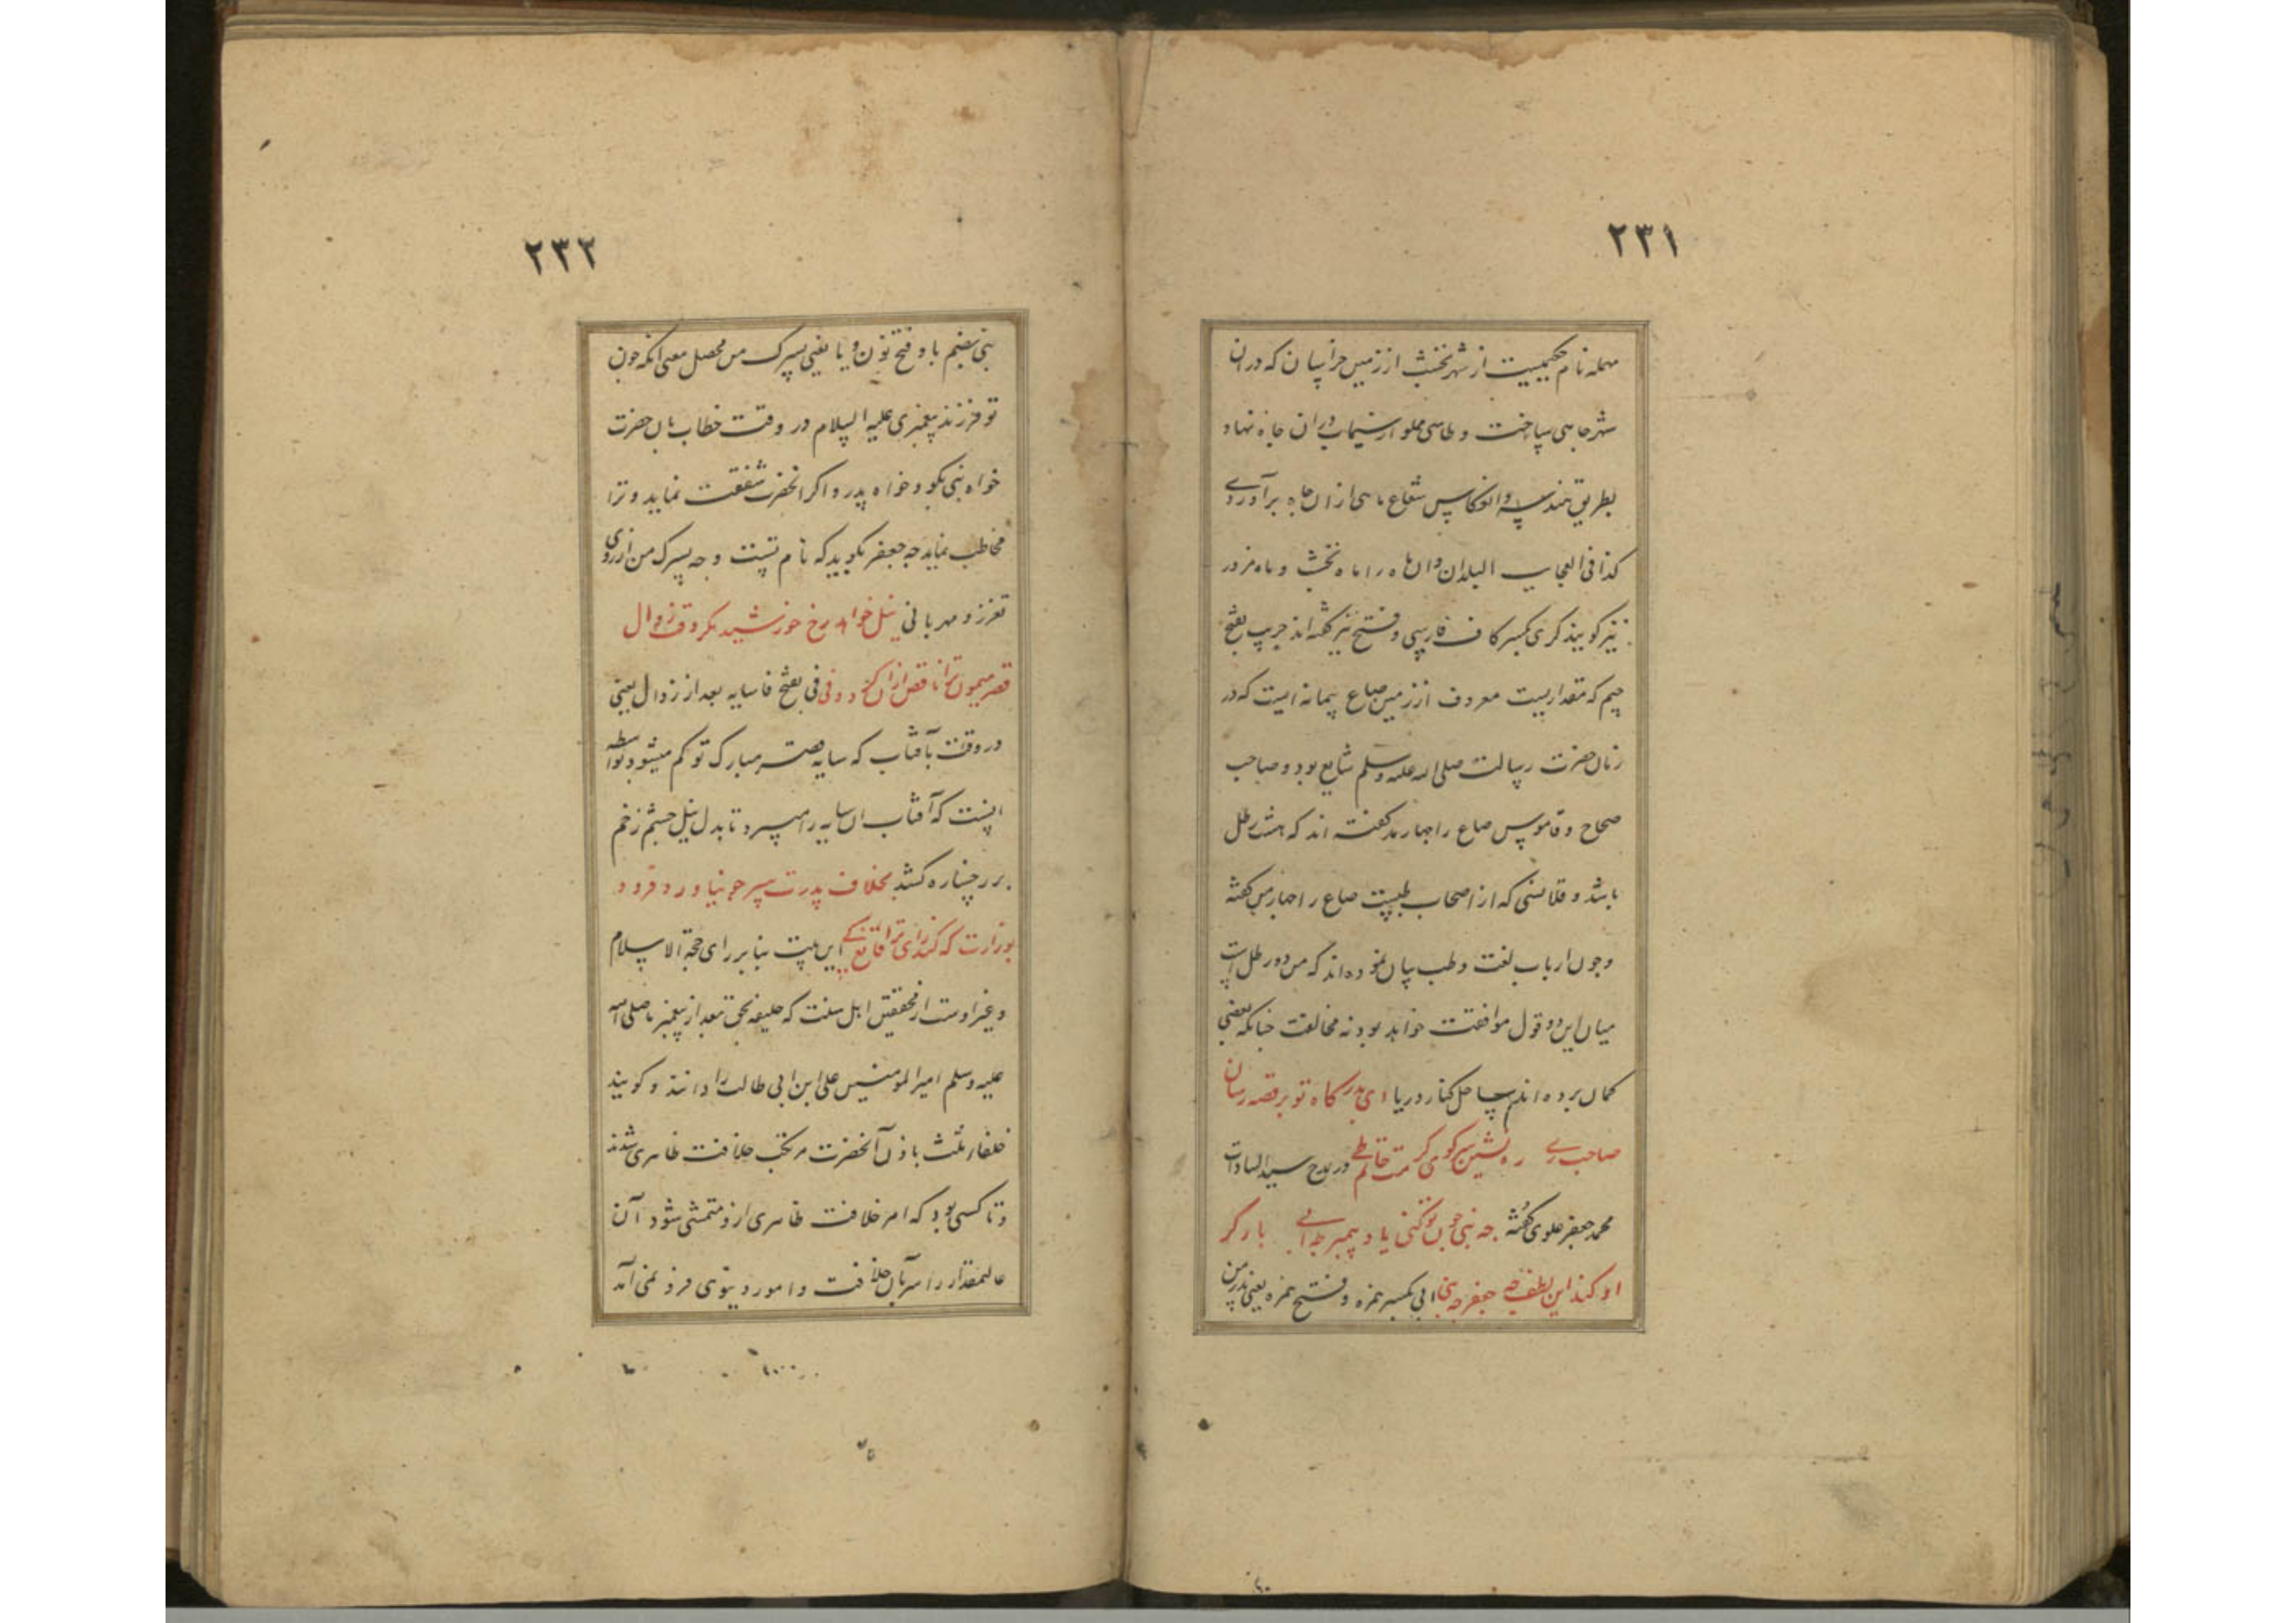 ٢٣١
مهمله نام حکیمیست از شهر نخشب از زمین خراسان که دران
شهر چاهی ساخت و طاسی مملو از سیماب دران چاه نهاد و
بطریق هندسه و انعکاس شعاع ماهی ازان چاه برآوردی
کذا فی العجایب البلدان و آن ماه را ماه نخشب و ماه مزور
نیز کویند کری بکسر کاف فارسی و فتح نیز کفته‌اند جریب بفتح
جیم که مقداریست معروف از زمین صاع پیمانه ایست که در
زمان حضرت رسالت صلی الله علیه وسلم شایع بود و صاحب
صحاح و قاموس صاع را چهار مد کفته اند که هشت رطل
باشد و قلانسی که از اصحاب طبیت صاع را چهار من کفته
و چون ارباب لغت و طب بیان نموده‌اند که من دو رطل است
میان این دو قول موافقت خواهد بود نه مخالفت چنانکه بعضی
کمان برده‌اند ساحل کنار دریا ای بدرکاه تو بر قصه رسان
صاحب ری ره نشین سر کوی کرمت حاتم طی در مدح سید السادات
محمد جعفر علوی کفته چه بنی چون تو کنی یاد پیمبر چه ابی بار کر
او کند این لطف چه جعفر چه بنی ابی بکسر همزه و فتح همزه یعنی پدر من
٢٣٢
بنی بضم با و فتح نون و یا یعنی پسرک من محصل معنی انکه چون
تو فرزند پیغمبری علیه السلام در وقت خطاب بان حضرت
خواه بنی بکو و خواه پدر و اکر انحضرت شفقت نماید و ترا
مخاطب نماید چه جعفر بکوید که نام تست و چه پسرک من از روی
تعزز و مهربانی نیل خواهد رخ خورشید مکر وقت زوال
قصر میمون ترا ناقص ازان کردد فی فی بفتح فا سایه بعد از زوال یعنی
در وقت آفتاب که سایه قصر مبارک تو کم میشود بواسطه
انست که آفتاب ان سایه را میبرد تا بدل نیل چشم زخم
بر رخساره کشد بخلاف پدرت سر چو نیاورد فرود
بوزارت که کند رای ترا قانع کی این بیت بنا بر رای حجة الاسلام
و غیر اوست از محققین اهل سنت که خلیفه بحق بعد از پیغمبر ما صلی الله
علیه وسلم امیر المومنین علی ابن ابی طالب را دانند و کویند
خلفاء ثلث باذن آنحضرت مرتکب خلافت ظاهری شدند
و تا کسی بود که امر خلافت ظاهری ازو متمشی شود آن
عالیمقدار را سر بآن خلافت و امور دینوی فرو نمی آمد